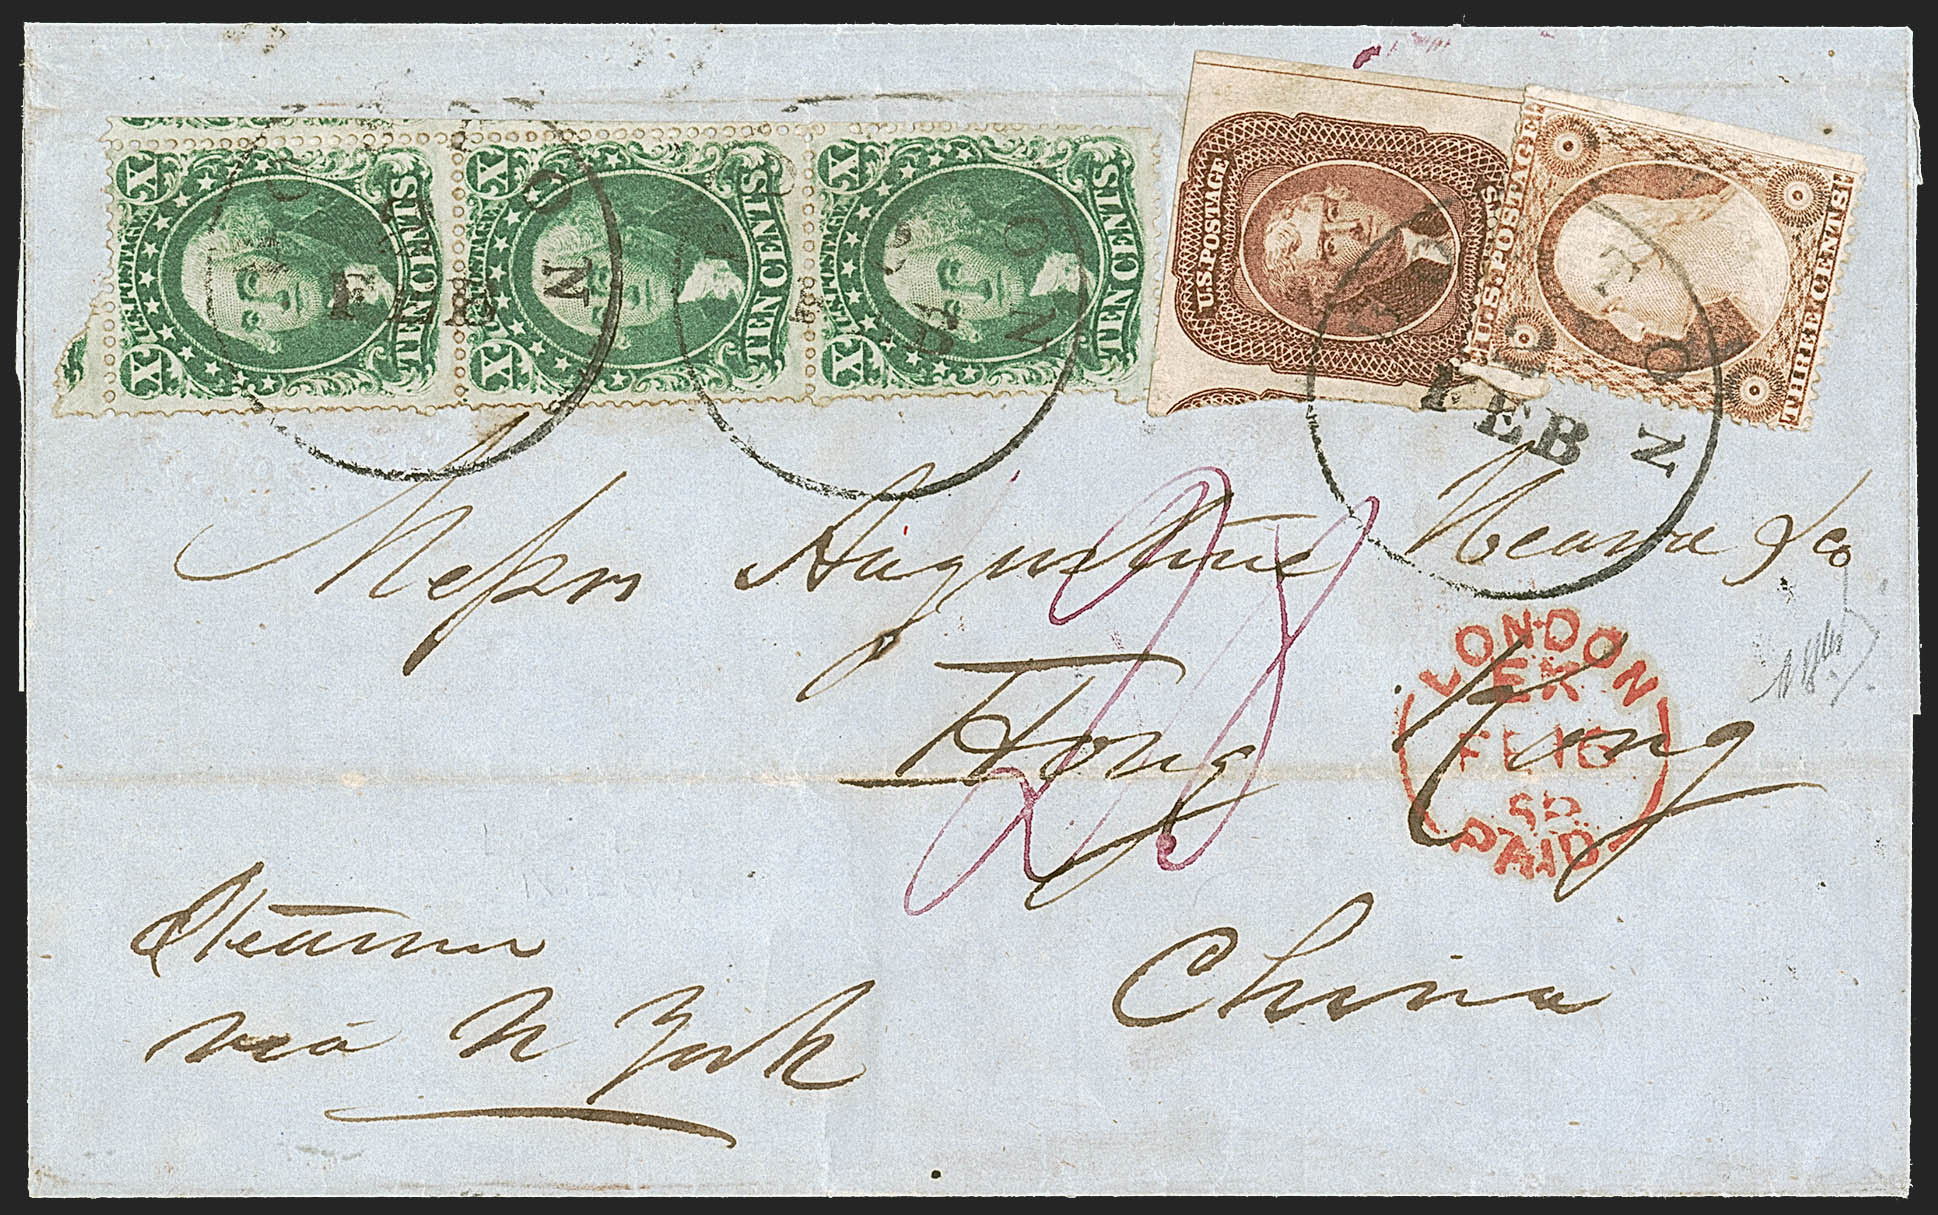 X U.S. POSTAGE X
TEN CENTS
X U.S. POSTAGE X
TEN CENTS
X U.S. POSTAGE X
TEN CENTS
U.S. POSTAGE
U.S. POSTAGE
THREE CENTS
FEB
FEB
Messrs Augustine Heard & Co
Hong Kong
China
LONDON
EK
FE 16
59
PAID
Steamer
via N York